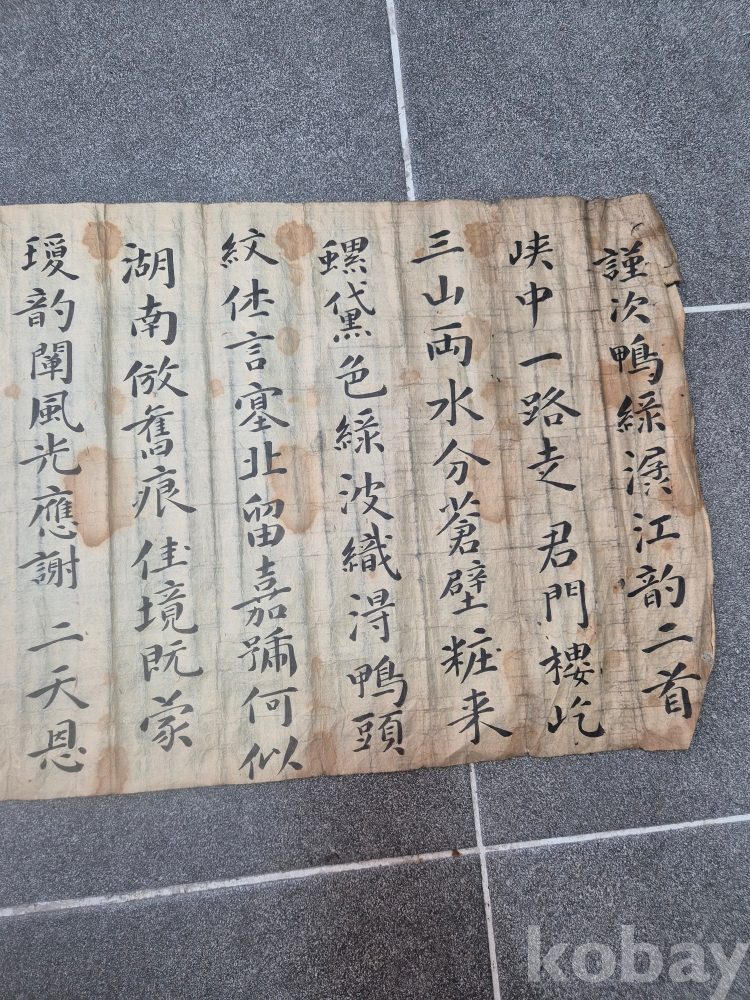 謹次鴨綠潺江韵二首
峡中一路走 君門樓屹
三山両水分蒼壁粧来
螺黛色綠波織淂鴨頭
紋休言塞北留嘉號何似
湖南倣舊痕佳境既蒙
瓊韵闡風光應謝 二天恩
kobay